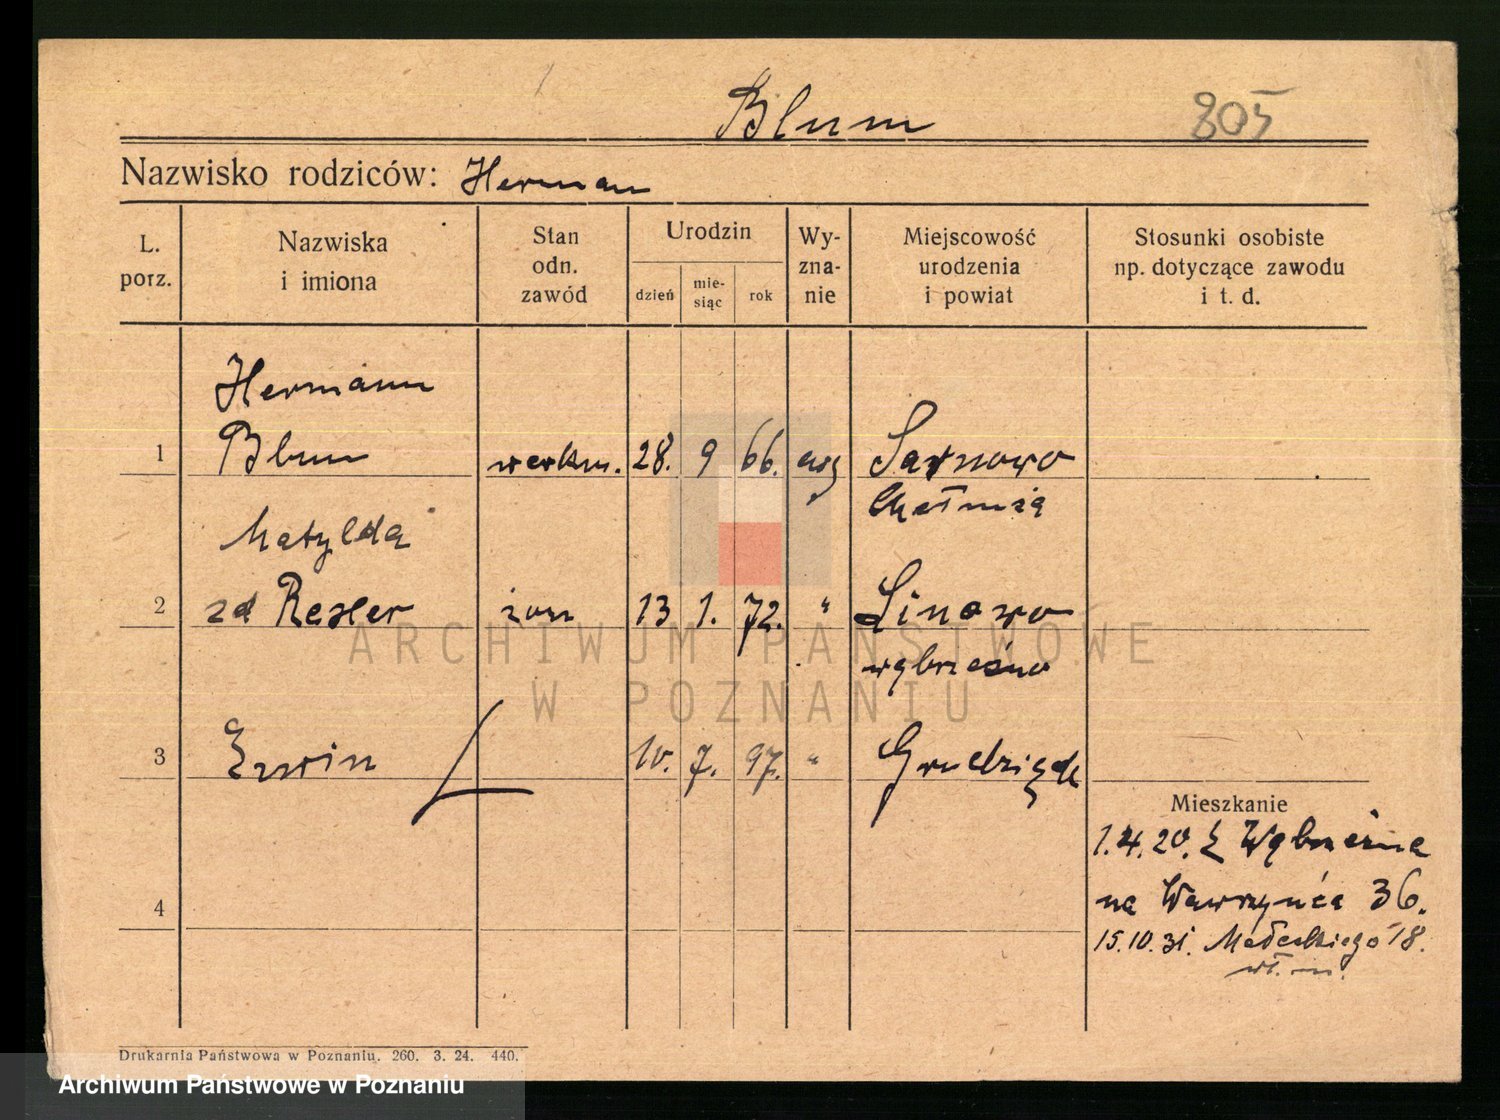 Blum
805
Nazwisko rodziców: Herman
L. porz.
Nazwiska i imiona
Stan odn. zawód
Urodzin
dzień
mie-
siąc
rok
Wy-
zna-
nie
Miejscowość urodzenia i powiat
Stosunki osobiste np. dotyczące zawodu i t. d.
Hermann
1 Blum werkm. 28. 9 66. ewg Sarnowo
Chełmża
Matylda
2 zd Resler żona 13 1. 72. " Linowo
wąbrzeźno
3 Erwin 10. 7. 97. " Grudziądz
Mieszkanie
1.4.20. z Wąbrzeźna
4 na Wawrzyńca 36.
15.10.31. Małeckiego 18.
wł. m.
Drukarnia Państwowa w Poznaniu. 260. 3. 24. 440.
ARCHIWUM PAŃSTWOWE
W POZNANIU
Archiwum Państwowe w Poznaniu